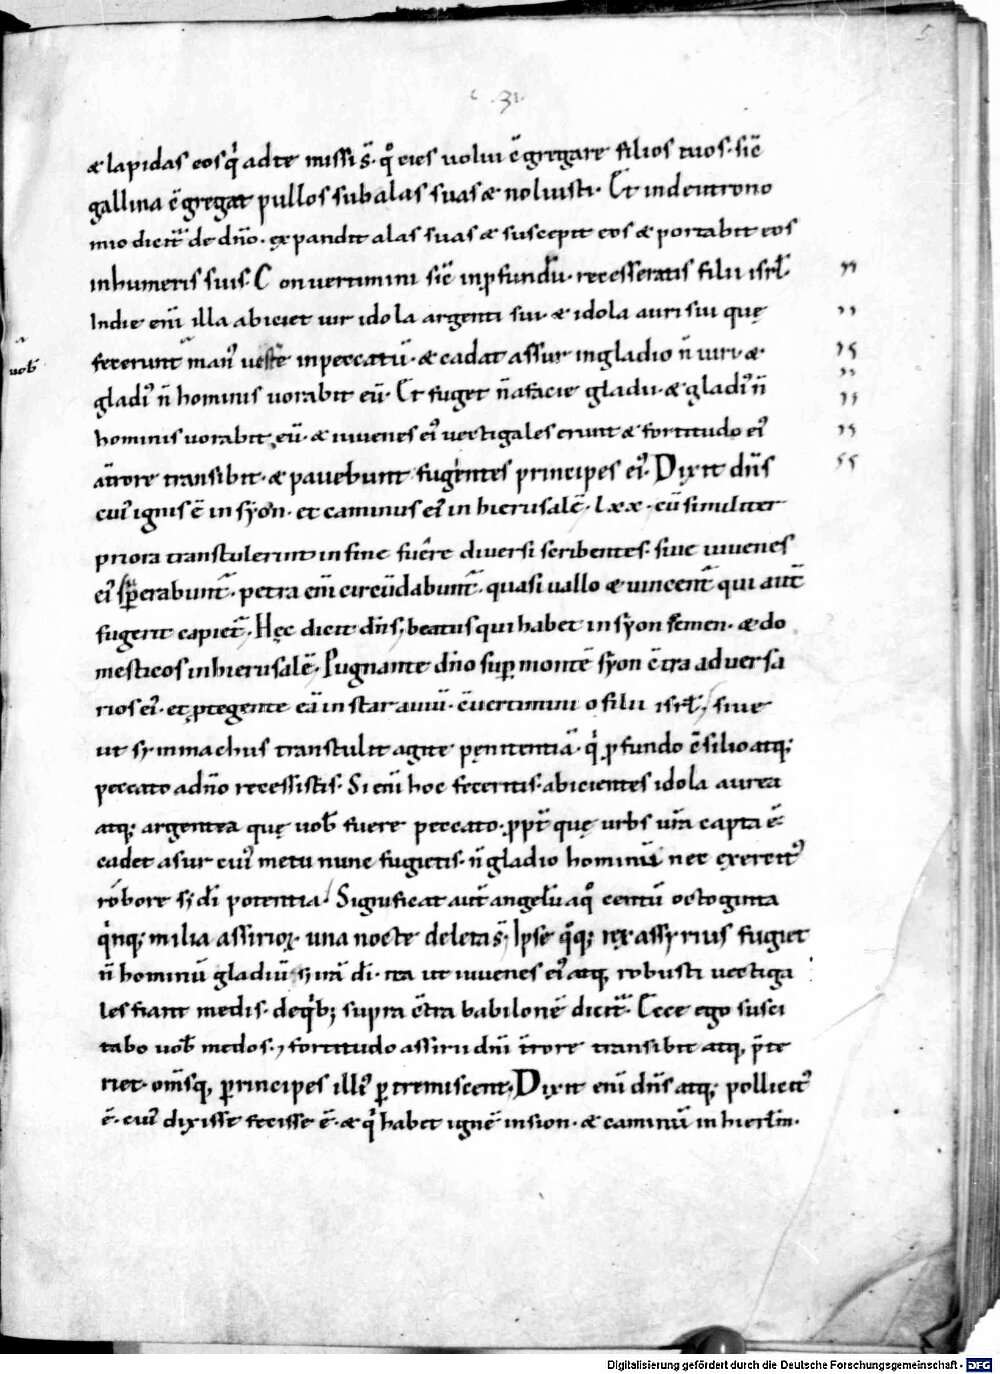 c. 31.
5
& lapidas eos q̇ ad te missi s̄. qͦ cies volui c̄gregare filios tuos. sic̄
gallina c̄gregat pullos sub alas suas & noluisti. Et in deutrono
mio dicit᷑ de dn̄o. expandit alas suas & suscepit eos & portabit eos
in humeris suis. Convertimini sic̄ in ꝓfundū. recesseratis filii isrl̄.
In die eni᷑ illa abiciet vir idola argenti sui. & idola auri sui quę
fecerunt man᷒ vestrę in peccatū. & cadat assur in gladio n̄ viri. &
uob̄
gladi᷒ n̄ hominis vorabit eū. Et fuget n̄ a facie gladii. & gladi᷒ n̄
hominis vorabit eū. & iuvenes ei᷒ vectigales erunt & fortitudo ei᷒
a t̄rore transibit. & pavebunt fugientes principes ei᷒. Dixit dn̄s
cui᷒ ignis ē in syon. et caminus ei᷒ in hierusalē. lxx. cū similiter
priora transtulerint in fine fuēre diversi scribentes. sive iuvenes
ei᷒ sup̄erabunt᷑. petra eni᷑ circūdabunt᷑. quasi vallo & vincent᷑ qui aut̄
fugerit capiet᷑. Hęc dicit dn̄s, beatus qui habet in syon semen. & do
mesticos in hierusalē. Pugnante dn̄o suꝑ montē syon c̄tra adversa
rios ei᷒. et ꝓtegente eā instar aviū. c̄vertimini o filii isrl̄, sive
ut symmachus transtulit agite pęnitentiā. q̇ ꝓfundo c̄silio atq;
peccato a dn̄o recessistis. Si eni᷑ hoc feceritis. abicientes idola aurea
atq; argentea quę vob̄ fuere peccato. ꝓpt̄ quę urbs vr̄a capta ē.
cadet asur cui᷒ metu nunc fugietis. n̄ gladio hominū nec exercit᷒
robore s; dī potentia. Significat aut̄ angelū a qͦ centū octoginta
q̇nq; milia assirioꝝ una nocte deleta s̄, Ipse qͦq; rex assyrius fugiet
n̄ hominū gladiū s; irā dī. ita ut iuvenes ei᷒ atq; robusti vectiga
les fiant medis. de q̇b; supra c̄tra babilonē dicit᷑. Ecce ego susci
tabo vob̄ medos. ⁊ fortitudo assirii dni᷑ t̄rore transibit atq; p̄te
riet. om̄sq; principes illi᷒ ꝑtremiscent. Dixit eni᷑ dn̄s atq; pollicit᷒
ē. cui᷒ dixisse fecisse ē. & q̇ habet ignē in sion. & caminū in hierl̄m.
Digitalisierung gefördert durch die Deutsche Forschungsgemeinschaft - DFG